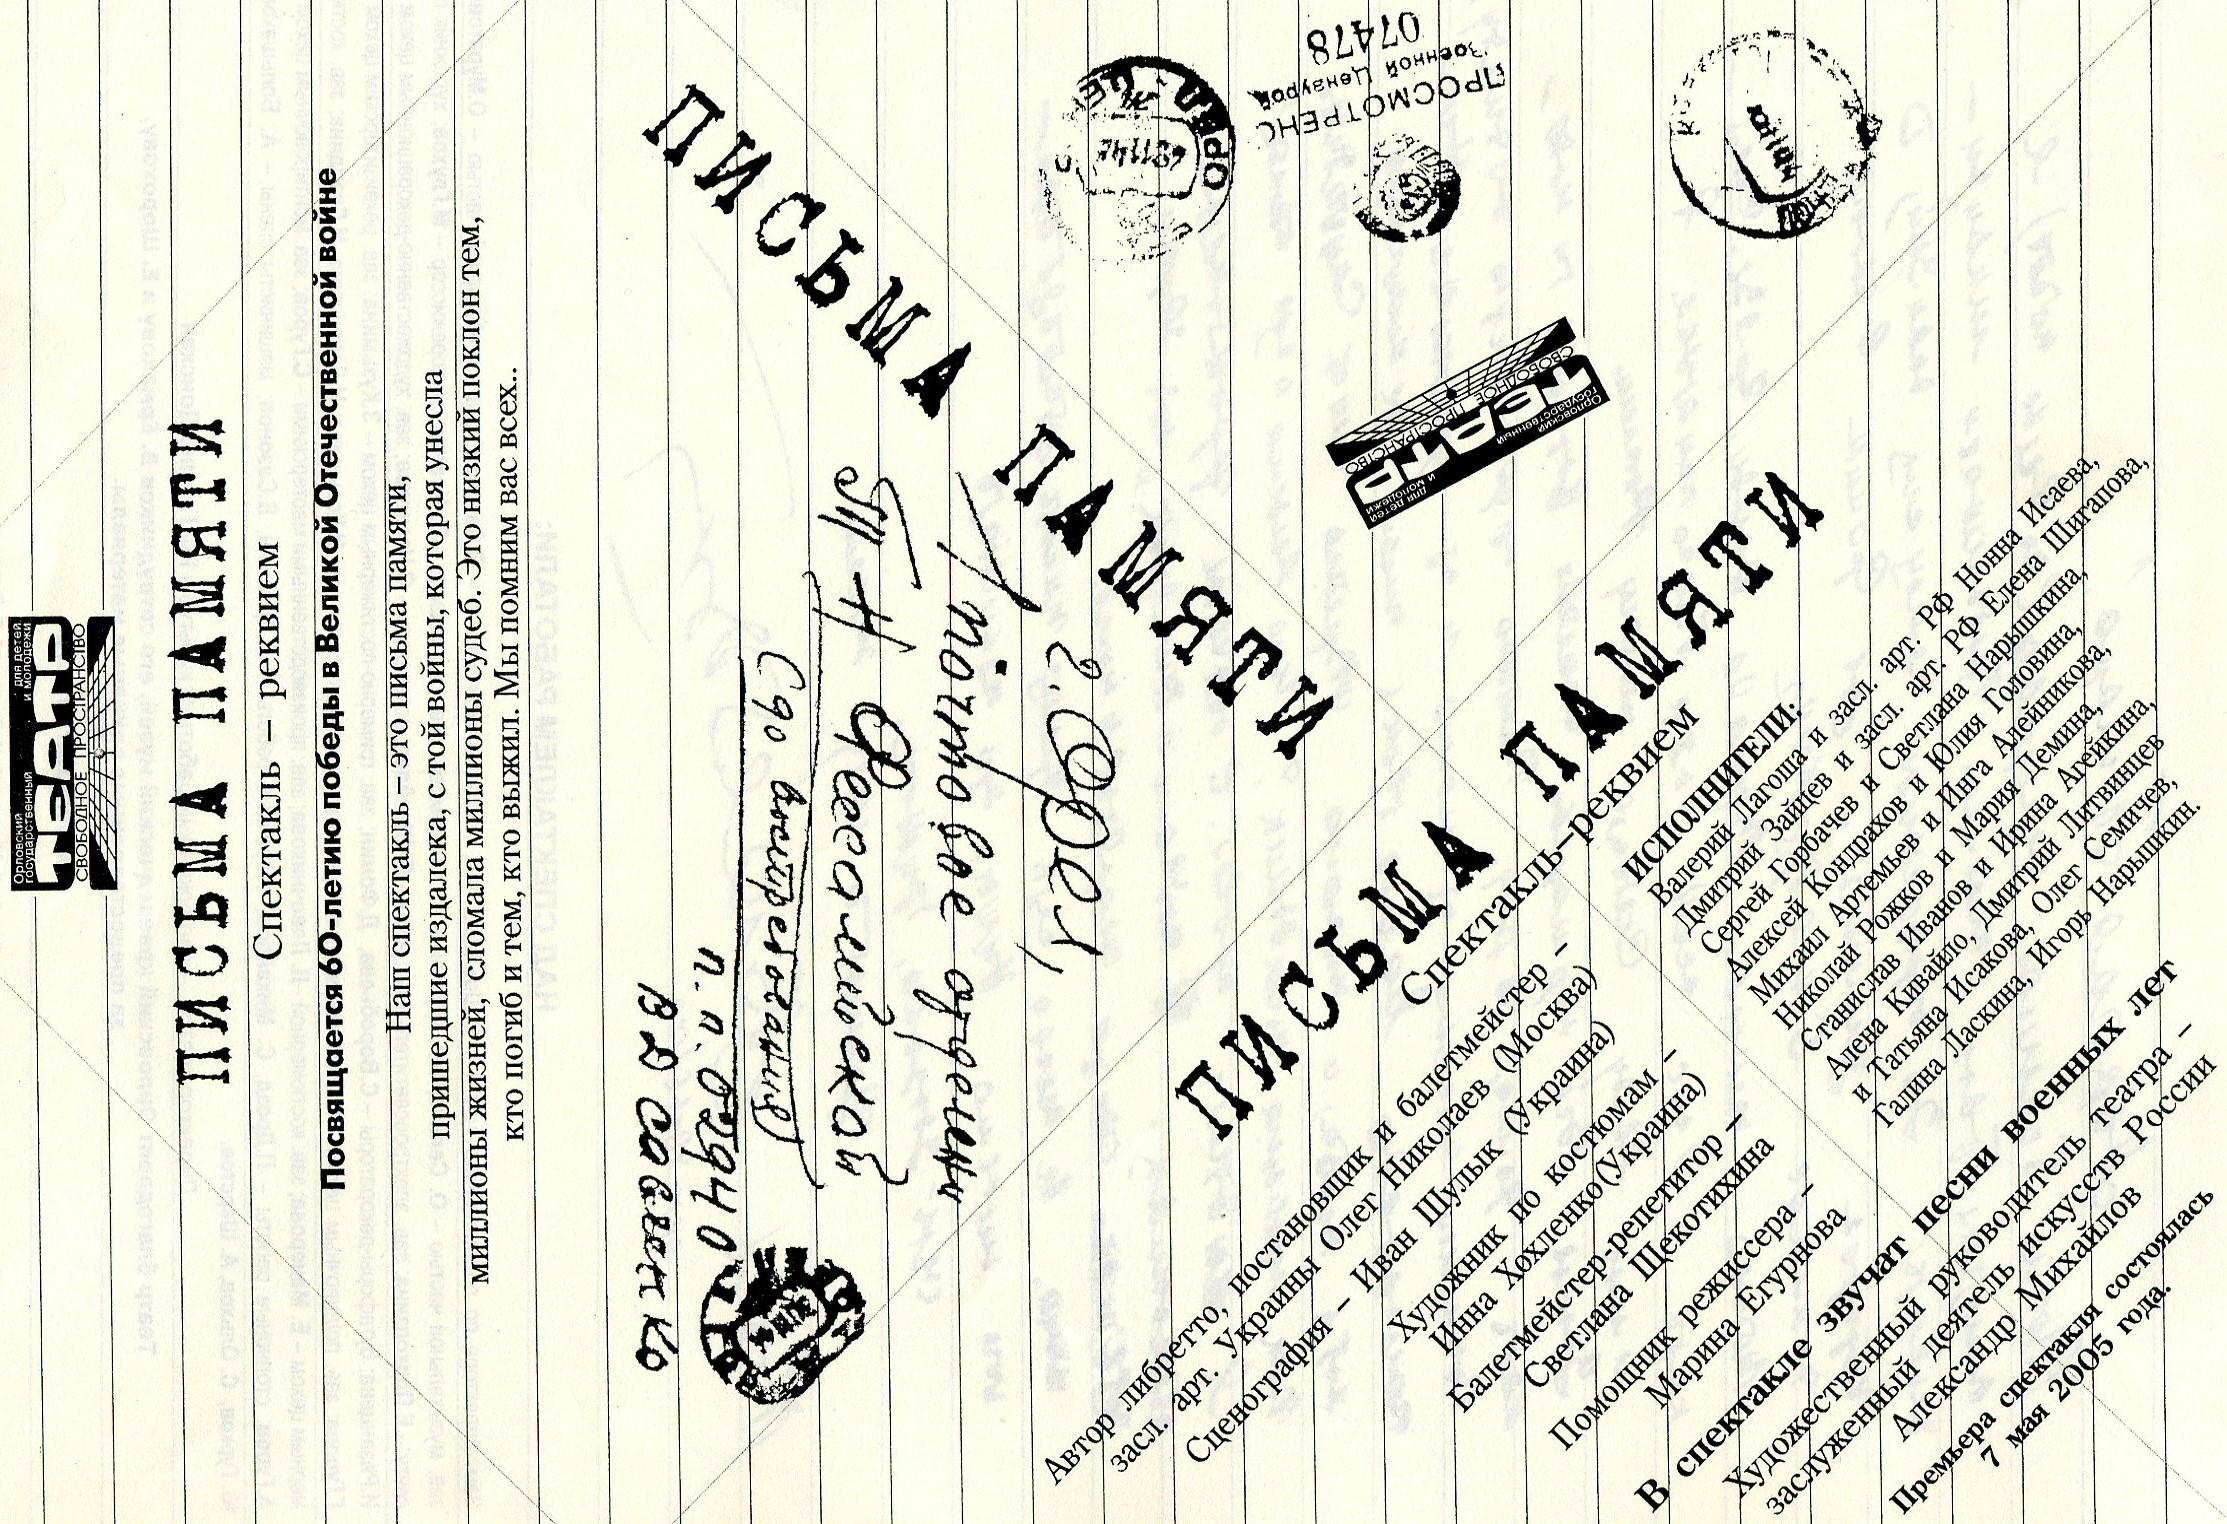 Орловский государственный
для детей и молодежи
ТЕАТР
СВОБОДНОЕ ПРОСТРАНСТВО
ПИСЬМА ПАМЯТИ
Спектакль – реквием
Посвящается 60-летию победы в Великой Отечественной войне
Наш спектакль – это письма памяти,
пришедшие издалека, с той войны, которая унесла
миллионы жизней, сломала миллионы судеб. Это низкий поклон тем,
кто погиб и тем, кто выжил. Мы помним вас всех..
ПИСЬМА ПАМЯТИ
г. Орел,
Почтовое
п.п. 02940
ПРОСМОТРЕНО
Военной Цензурой
07478
Орловский государственный
для детей и молодежи
ТЕАТР
СВОБОДНОЕ ПРОСТРАНСТВО
ПИСЬМА ПАМЯТИ
Спектакль–реквием
Автор либретто, постановщик и балетмейстер –
засл. арт. Украины Олег Николаев (Москва)
Сценография – Иван Шулык (Украина)
Художник по костюмам –
Инна Хохленко(Украина)
Балетмейстер-репетитор –
Светлана Щекотихина
Помощник режиссера –
Марина Егурнова
ИСПОЛНИТЕЛИ:
Валерий Лагоша и засл. арт. РФ Нонна Исаева,
Дмитрий Зайцев и засл. арт. РФ Елена Шигапова,
Сергей Горбачев и Светлана Нарышкина,
Алексей Кондрахов и Юлия Головина,
Михаил Артемьев и Инга Алейникова,
Николай Рожков и Мария Демина,
Станислав Иванов и Ирина Агейкина,
Алена Кивайло, Дмитрий Литвинцев
и Татьяна Исакова, Олег Семичев,
Галина Ласкина, Игорь Нарышкин.
В спектакле звучат песни военных лет
Художественный руководитель театра –
заслуженный деятель искусств России
Александр Михайлов
Премьера спектакля состоялась
7 мая 2005 года.